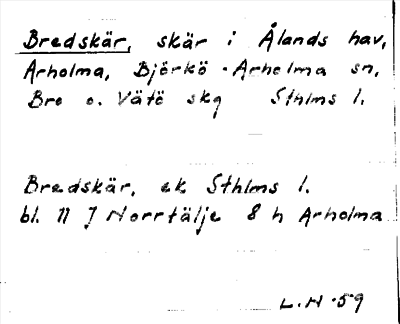 Bredskär, skär i Ålands hav,
Arholma, Björkö-Arholma sn,
Bro o. Vätö skg Sthlms l.
Bredskär, ek Sthlms l.
bl. 11 J Norrtälje 8 h Arholma
L.H-59